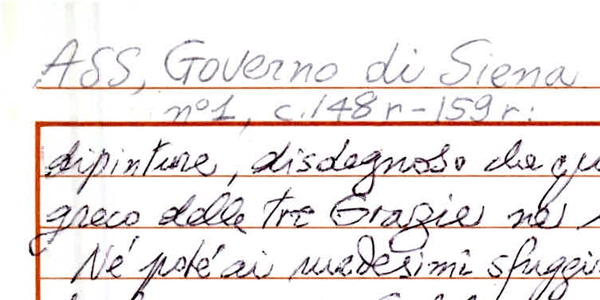 ASS, Governo di Siena
n° 1, c. 148r-159r:
dipinture, disdegnoso che qu
greco delle tre Grazie ne
Né poté ai medesimi sfuggi